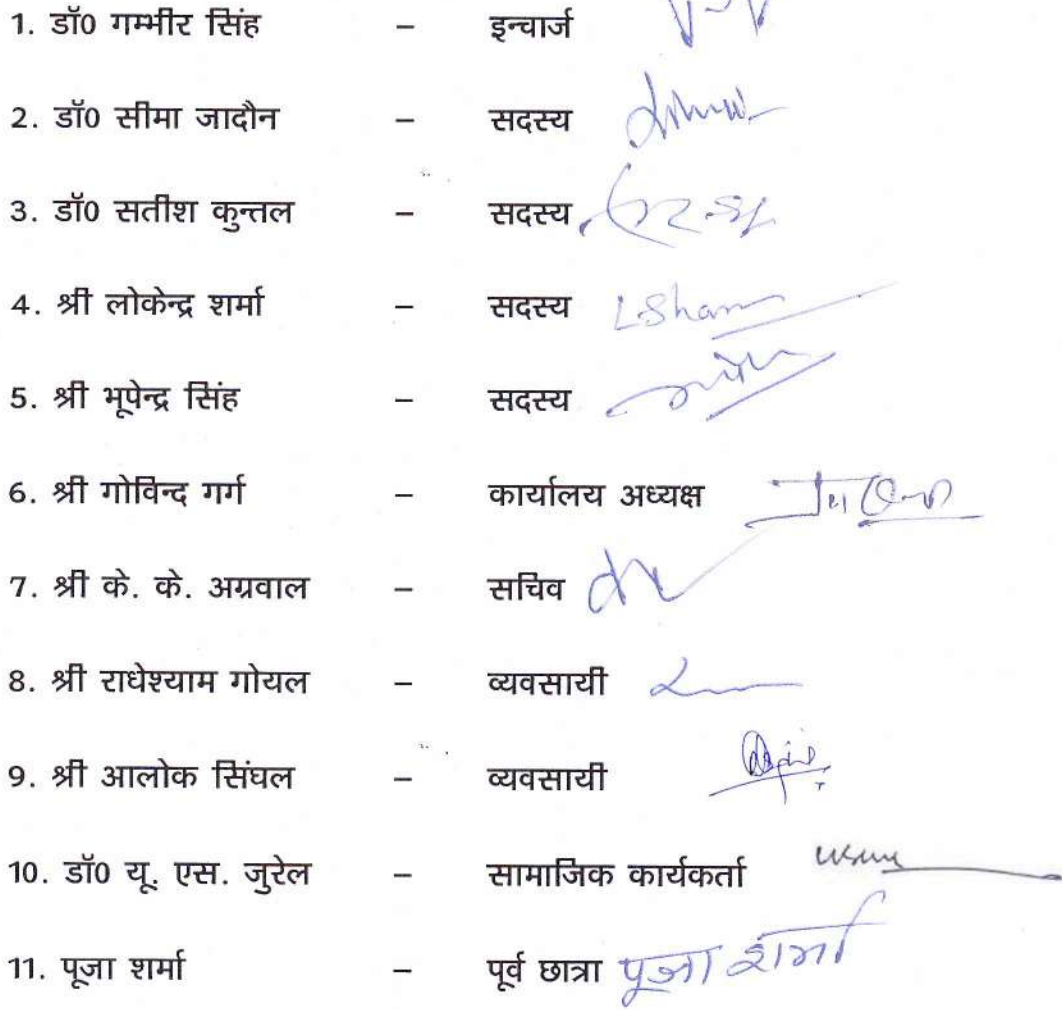 1. डॉ0 गम्भीर सिंह – इन्चार्ज
2. डॉ0 सीमा जादौन – सदस्य
3. डॉ0 सतीश कुन्तल – सदस्य
4. श्री लोकेन्द्र शर्मा – सदस्य LSharm
5. श्री भूपेन्द्र सिंह – सदस्य
6. श्री गोविन्द गर्ग – कार्यालय अध्यक्ष
7. श्री के. के. अग्रवाल – सचिव
8. श्री राधेश्याम गोयल – व्यवसायी
9. श्री आलोक सिंघल – व्यवसायी
10. डॉ0 यू. एस. जुरेल – सामाजिक कार्यकर्ता
11. पूजा शर्मा – पूर्व छात्रा पूजा शर्मा